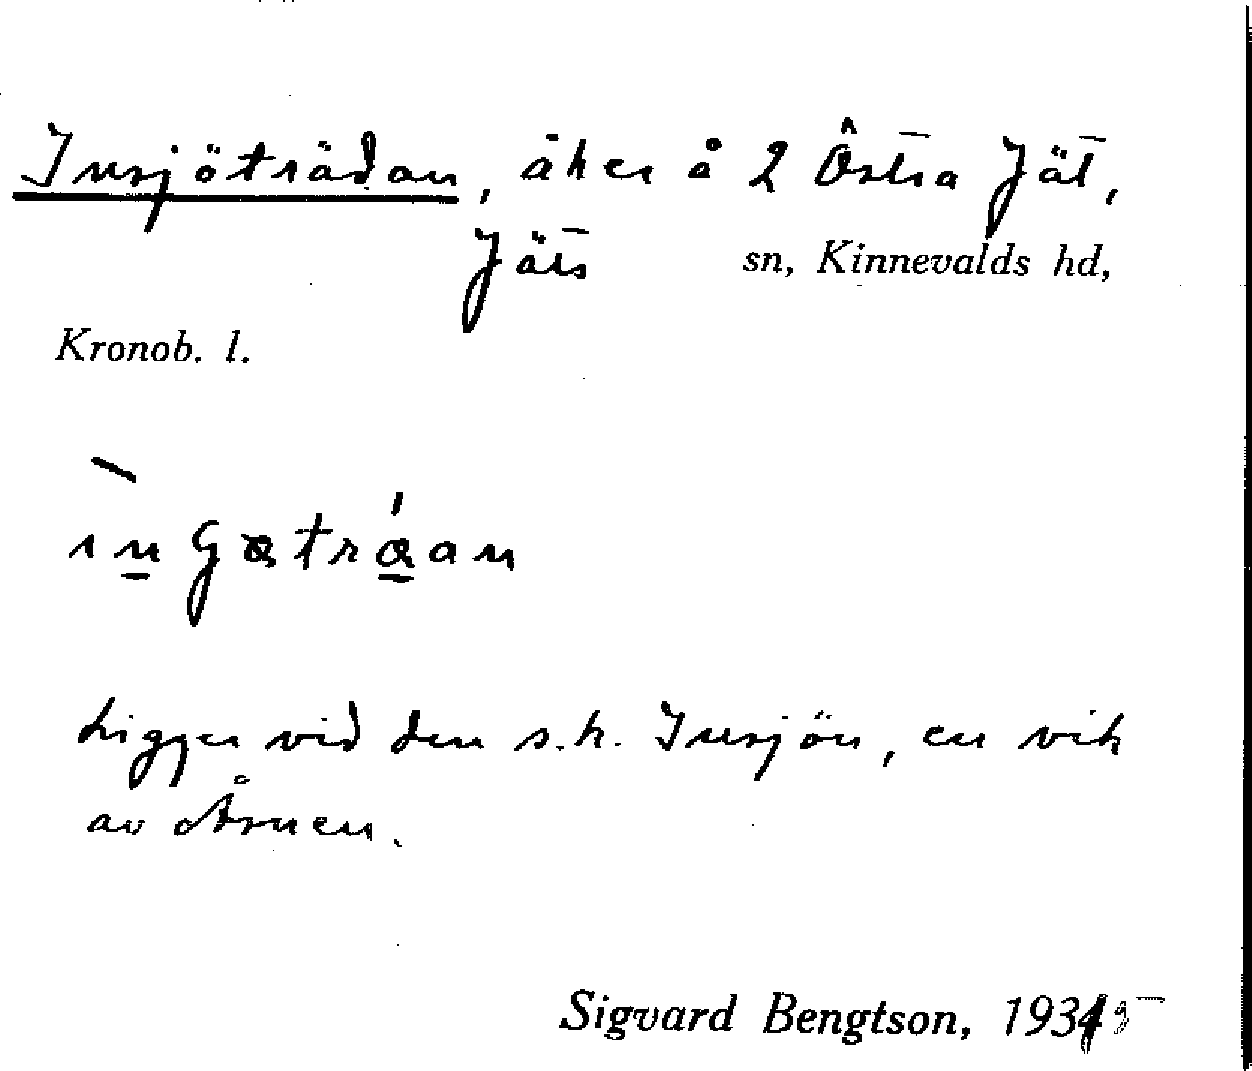 Insjöträdan, åker å 2 Östra Jät,
Jäts sn, Kinnevalds hd,
Kronob. l.
Ligger vid den s.k. Insjön, en vik
av Åsnen.
Sigvard Bengtson, 1935